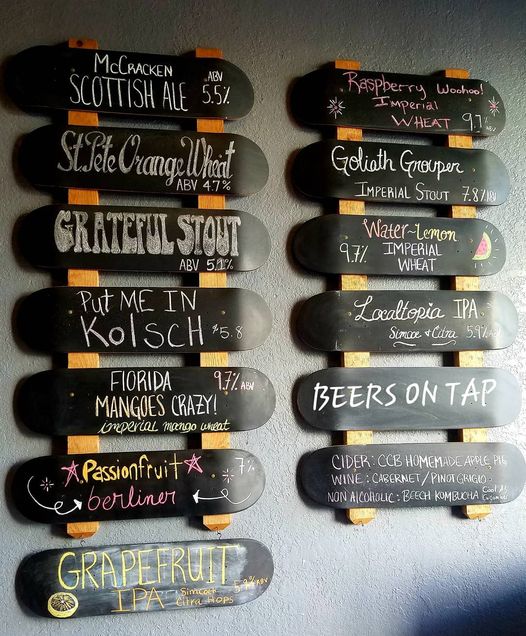 McCRACKEN
SCOTTISH ALE ABV 5.5%
St. Pete Orange Wheat
ABV 4.7%
GRATEFUL STOUT
ABV 5.1%
Put ME IN
KolSCH 5.8
FLORIDA 9.7% ABV
MANGOES CRAZY!
imperial mango wheat
Passionfruit 7%
berliner
GRAPEFRUIT
IPA Simcoe Citra Hops 5.9% ABV
Raspberry Woohoo!
Imperial
WHEAT 9.7 ABV
Goliath Grouper
IMPERIAL STOUT 7.8% ABV
Water-Lemon
9.7% IMPERIAL
WHEAT
Localtopia IPA
Simcoe & Citra 5.9%
BEERS ON TAP
CIDER: CCB HOMEMADE APPLE PIE
WINE: CABERNET/PINOT GRIGIO
NON ALCOHOLIC: BEECH KOMBUCHA Cool As